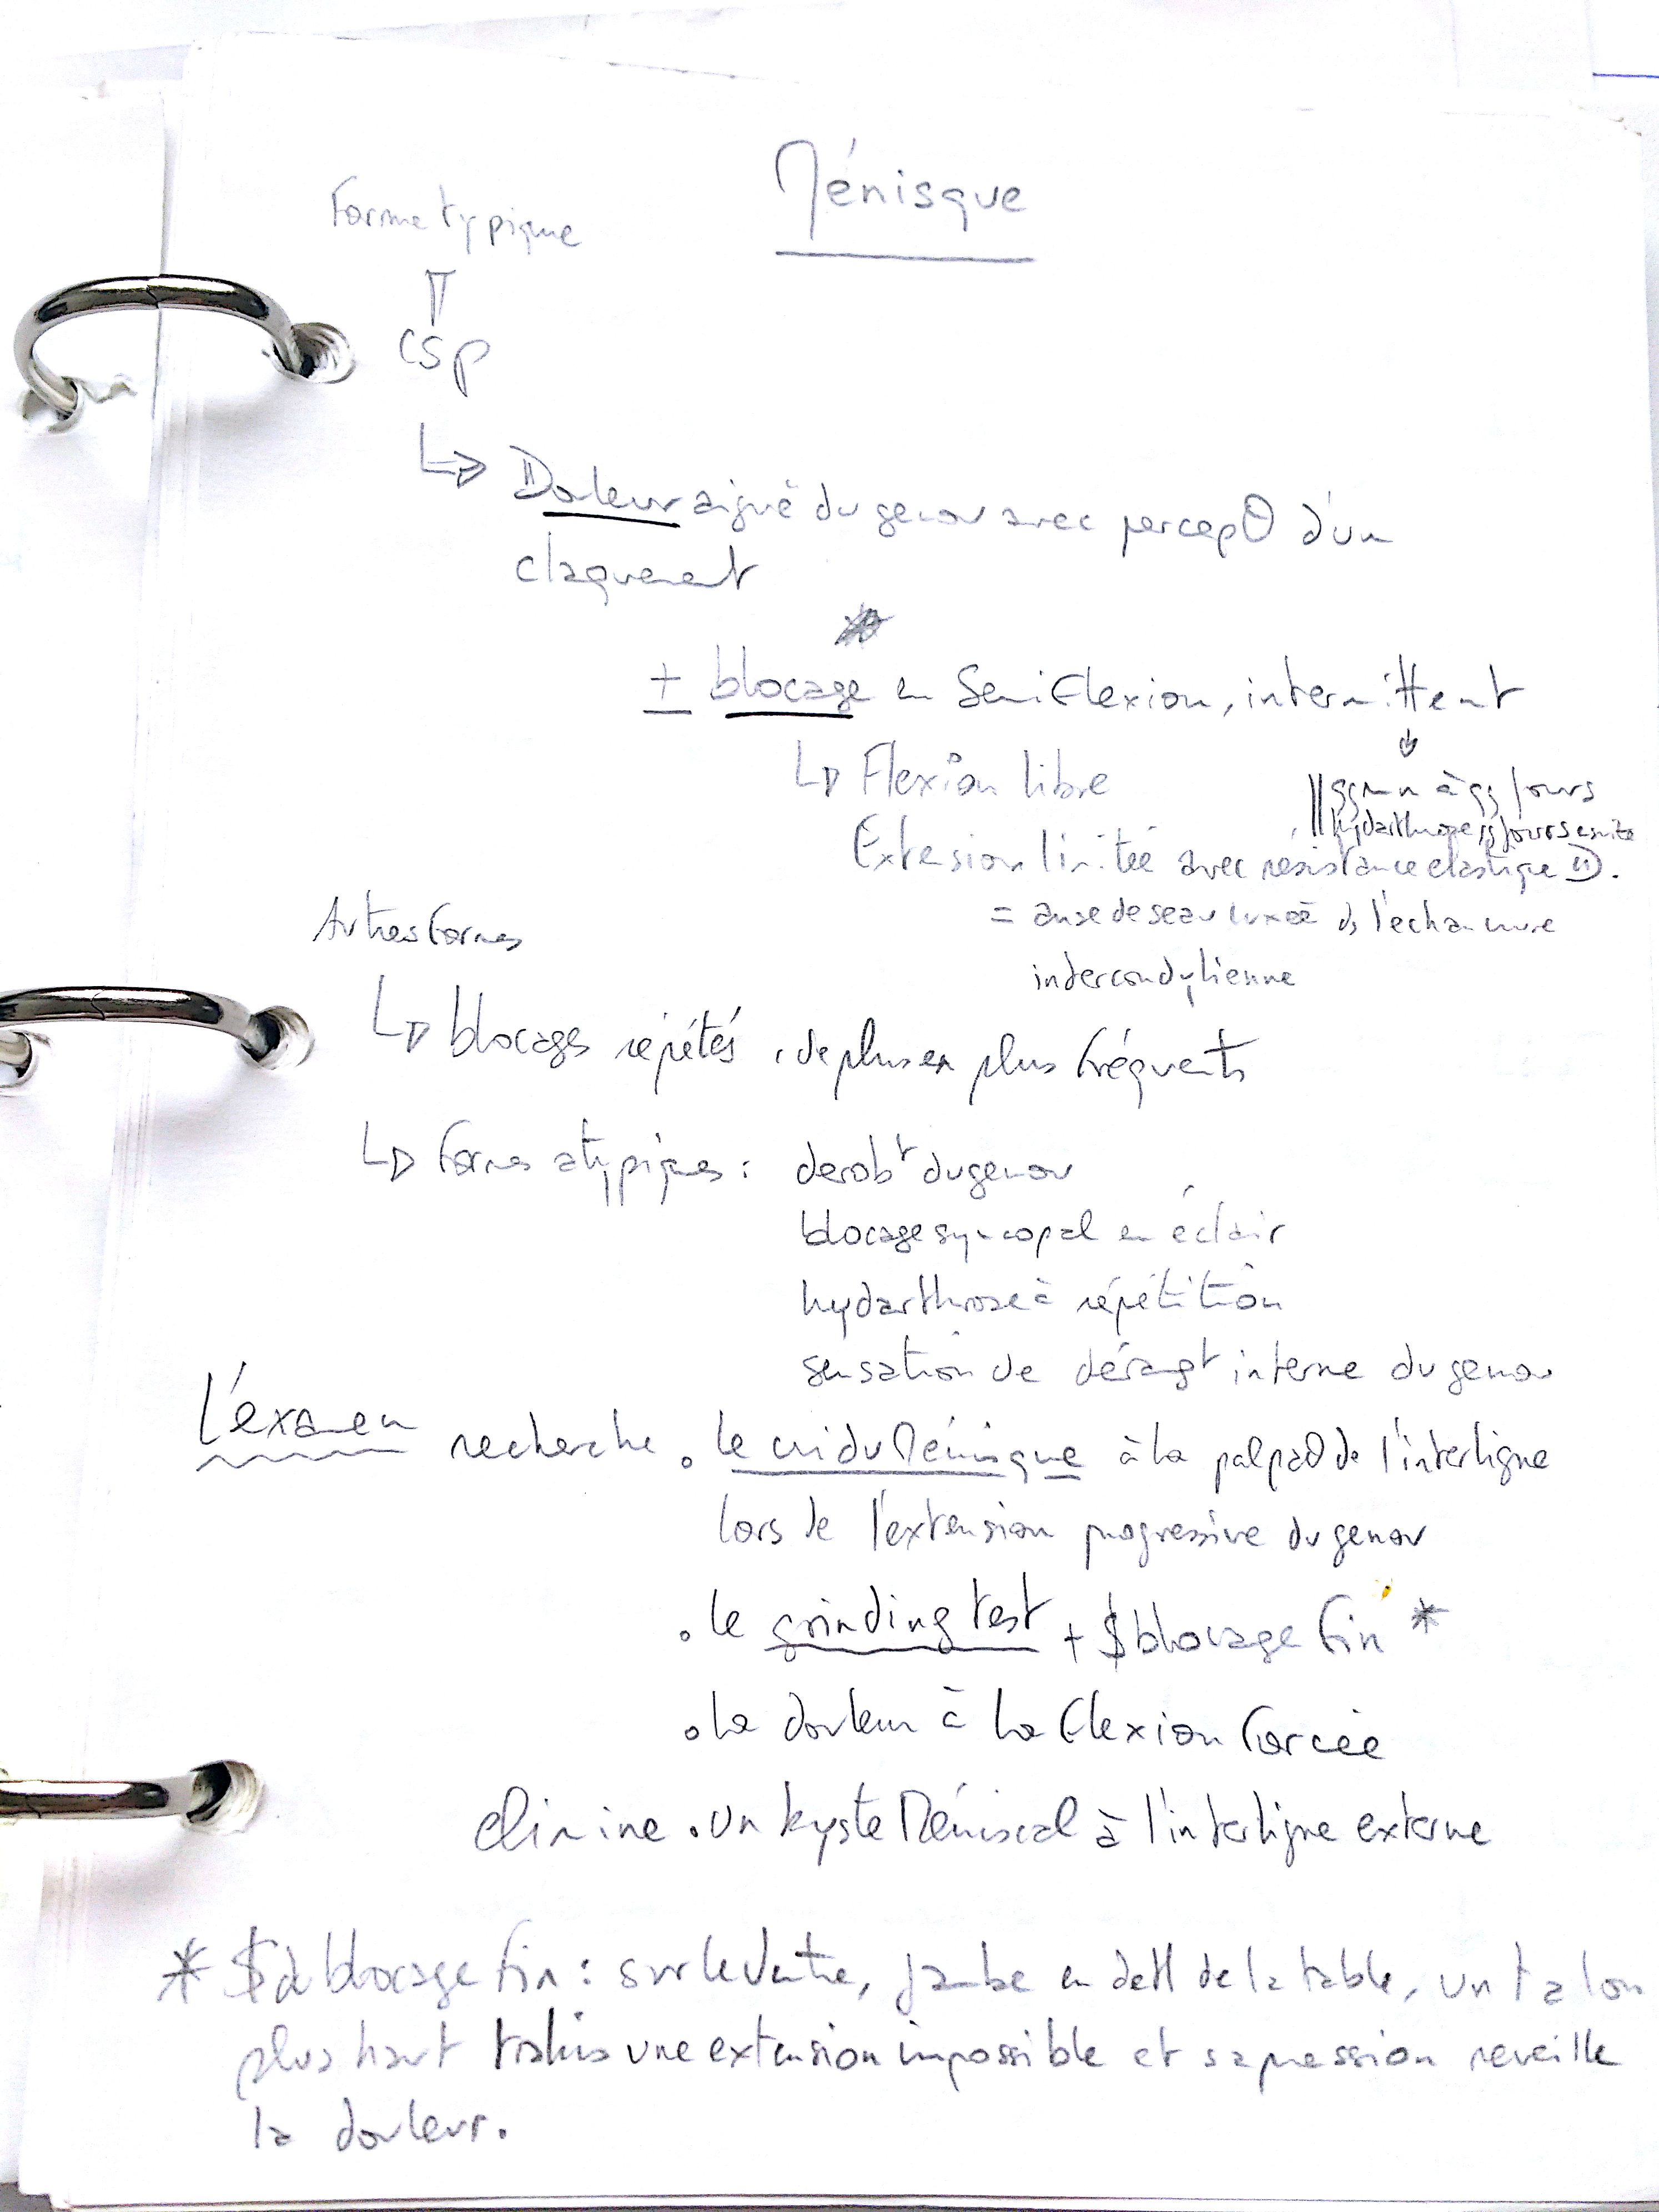 Ménisque
Forme typique
csp
Douleur aiguë du genou avec percepθ d'un
claquement
± blocage en semi flexion, intermittent
Flexion libre
qq mn à qq jours
hydarthrose qq jours ensuite
Extension limitée avec résistance elastique
= anse de seau luxée ds l'echancrure
intercondylienne
Autres formes
blocages répétés, de plus en plus fréquents
formes atypiques : derobt du genou
blocage syncopal en éclair
hydarthrose à répétition
sensation de dérangt interne du genou
L'examen recherche . le cri du Ménisque à la palpaθ de l'interligne
lors de l'extension progressive du genou
. le grinding test + $ blocage fin *
. la douleur à la flexion forcée
elimine . un kyste Méniscal à l'interligne externe
* $ de blocage fin : sur le ventre, jambe en deH de la table, un talon
plus haut trahis une extension impossible et sa pression reveille
la douleur.